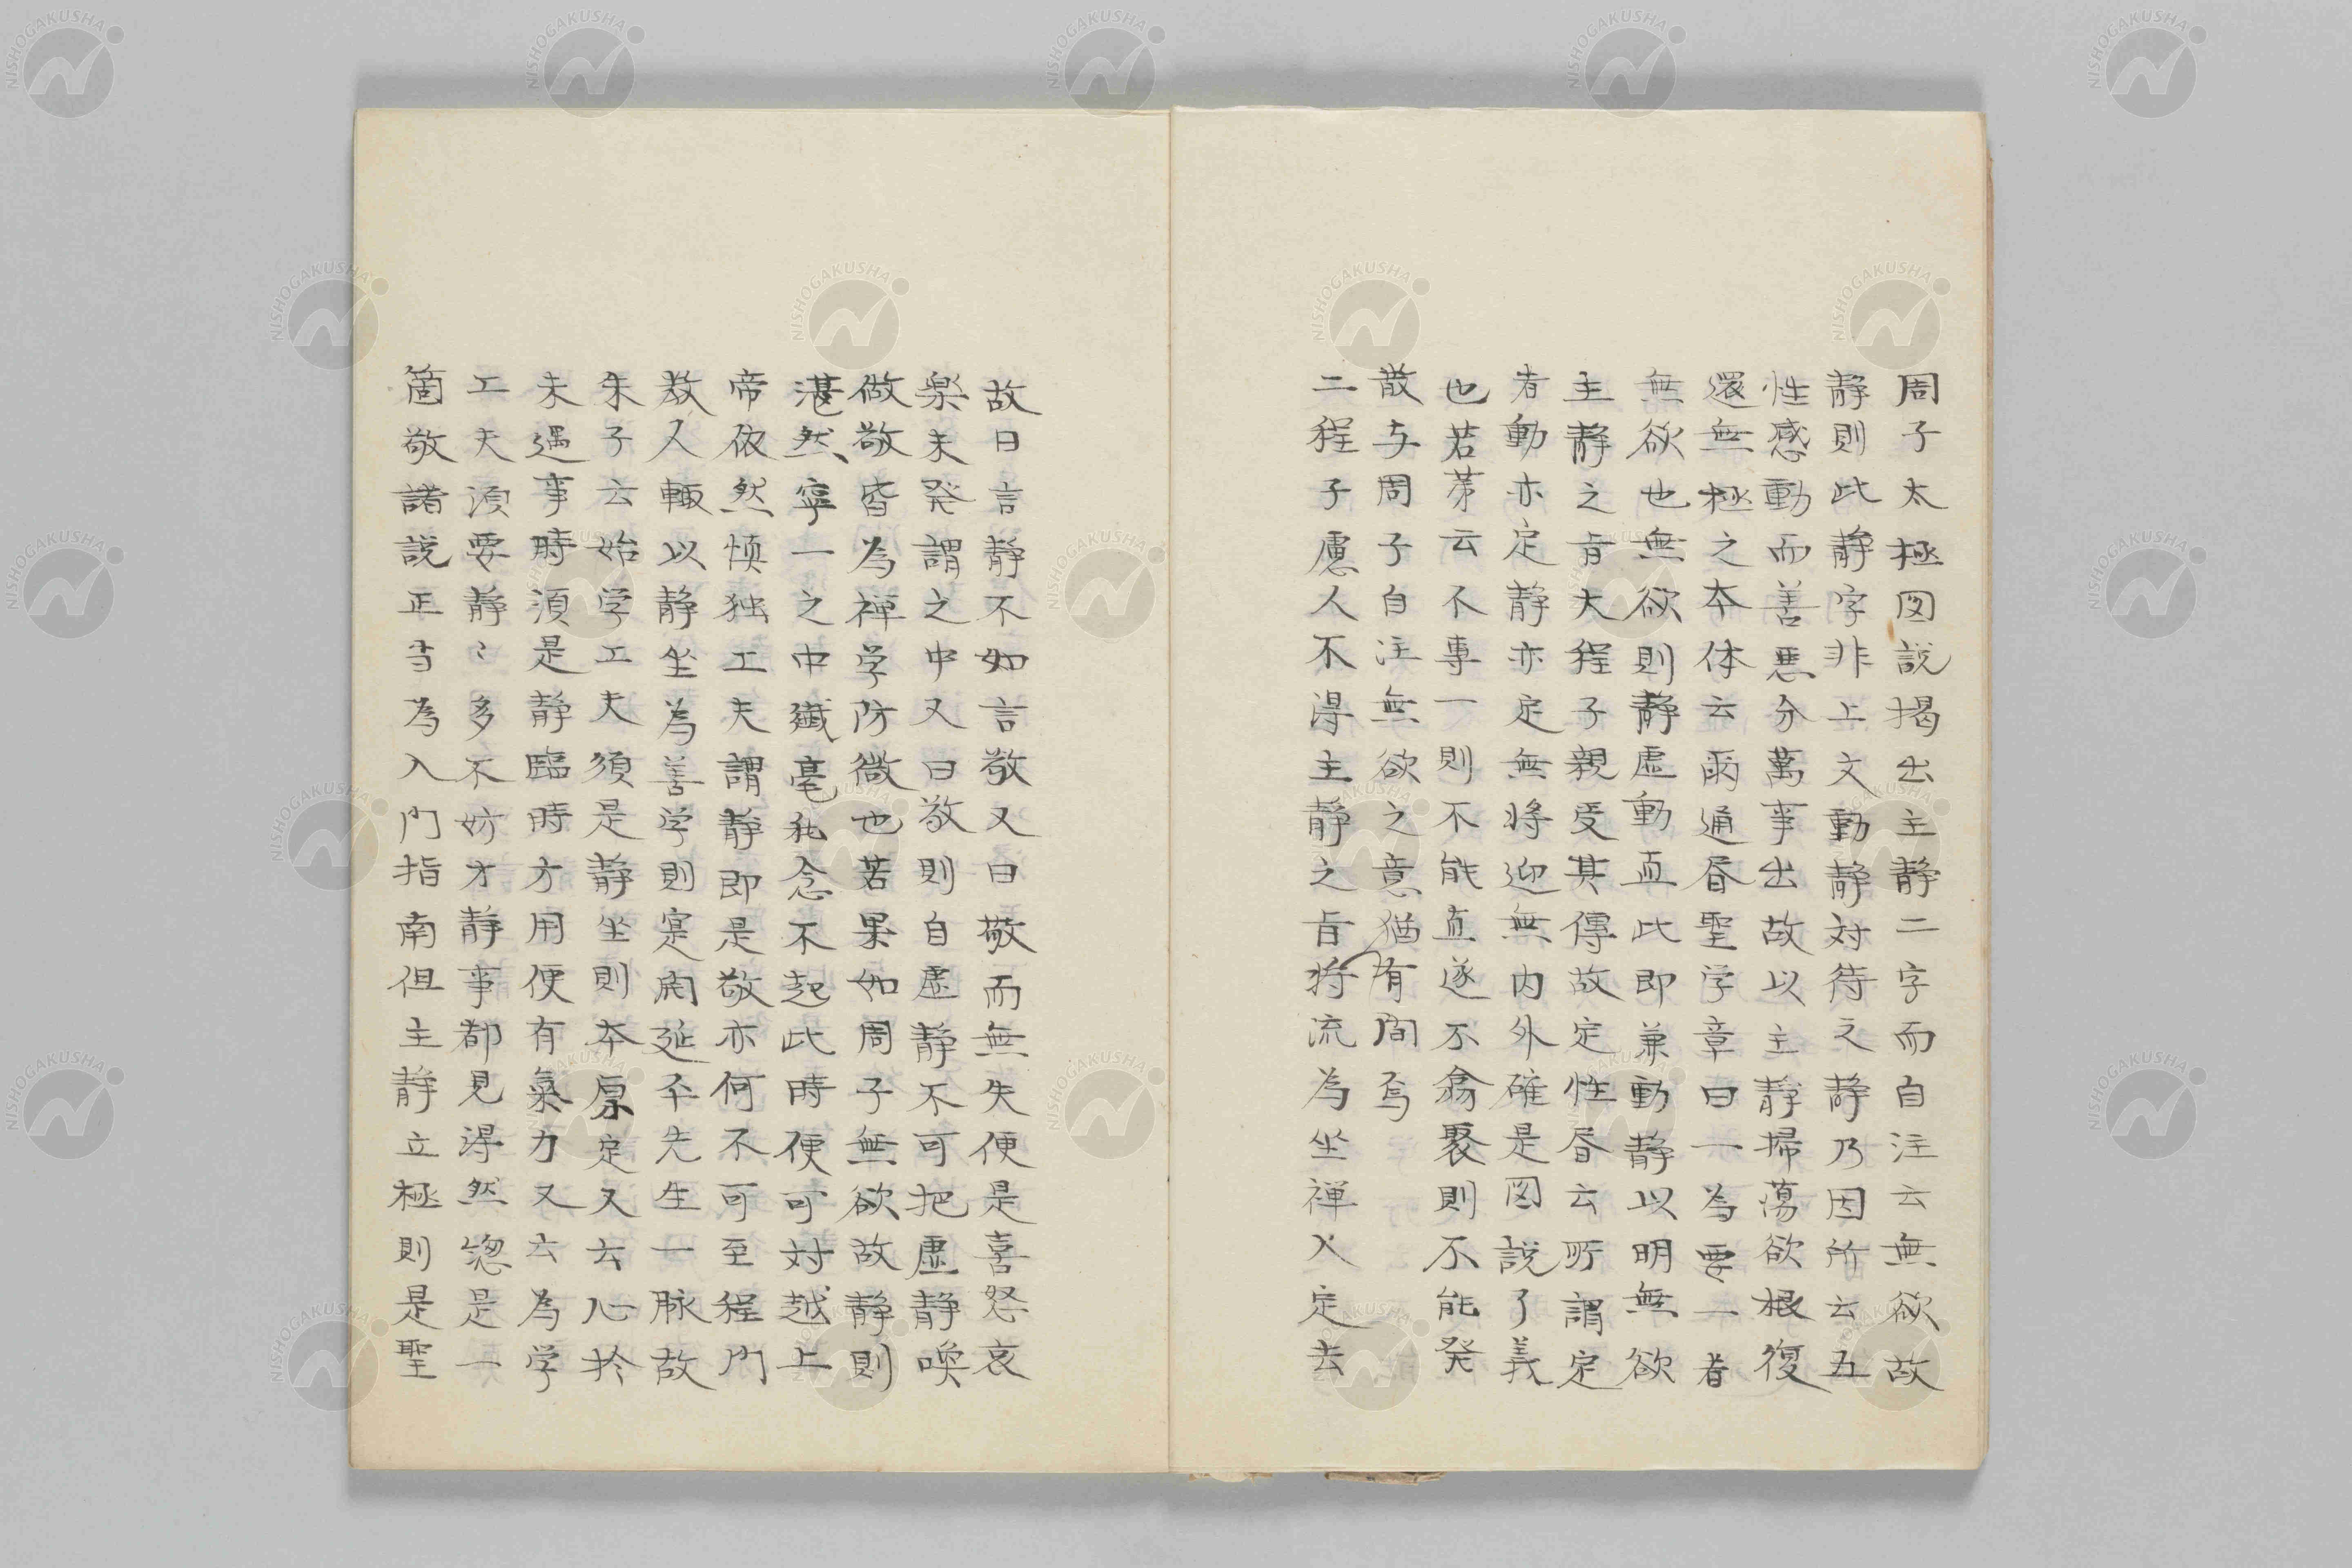 周子太極図説掲出主静二字而自注云無欲故
静則此静字非上文動静対待之静乃因所云五
性感動而善悪分萬事出故以主静掃蕩欲根復
還無極之本体云爾通昏聖学章曰一為要一者
無欲也無欲則静虚動直此即兼動静以明無欲
主静之旨大程子親受其傳故定性昏云所謂定
者動亦定静亦定無将迎無内外確是図説了義
也若第云不専一則不能直遂不翕聚則不能発
散与周子自注無欲之意猶有間焉
二程子慮人不得主静之旨将流為坐禅入定去
故曰言静不如言敬又曰敬而無失便是喜怒哀
楽未発謂之中又曰敬則自虚静不可把虚静喚
做敬皆為禅学防微也若果如周子無欲故静則
湛然寧一之中纖毫私念不起此時便可対越上
帝依然慎独工夫謂静即是敬亦何不可至程門
教人輙以静坐為善学則寔開延平先生一脉故
朱子云始学工夫須是静坐則本原定又云心於
未遇事時須是静臨時方用便有氣力又云為学
工夫須要静〻多不妨才静事都見得然惣是一
箇敬諸説正当為入門指南但主静立極則是聖
NISHOGAKUSHA